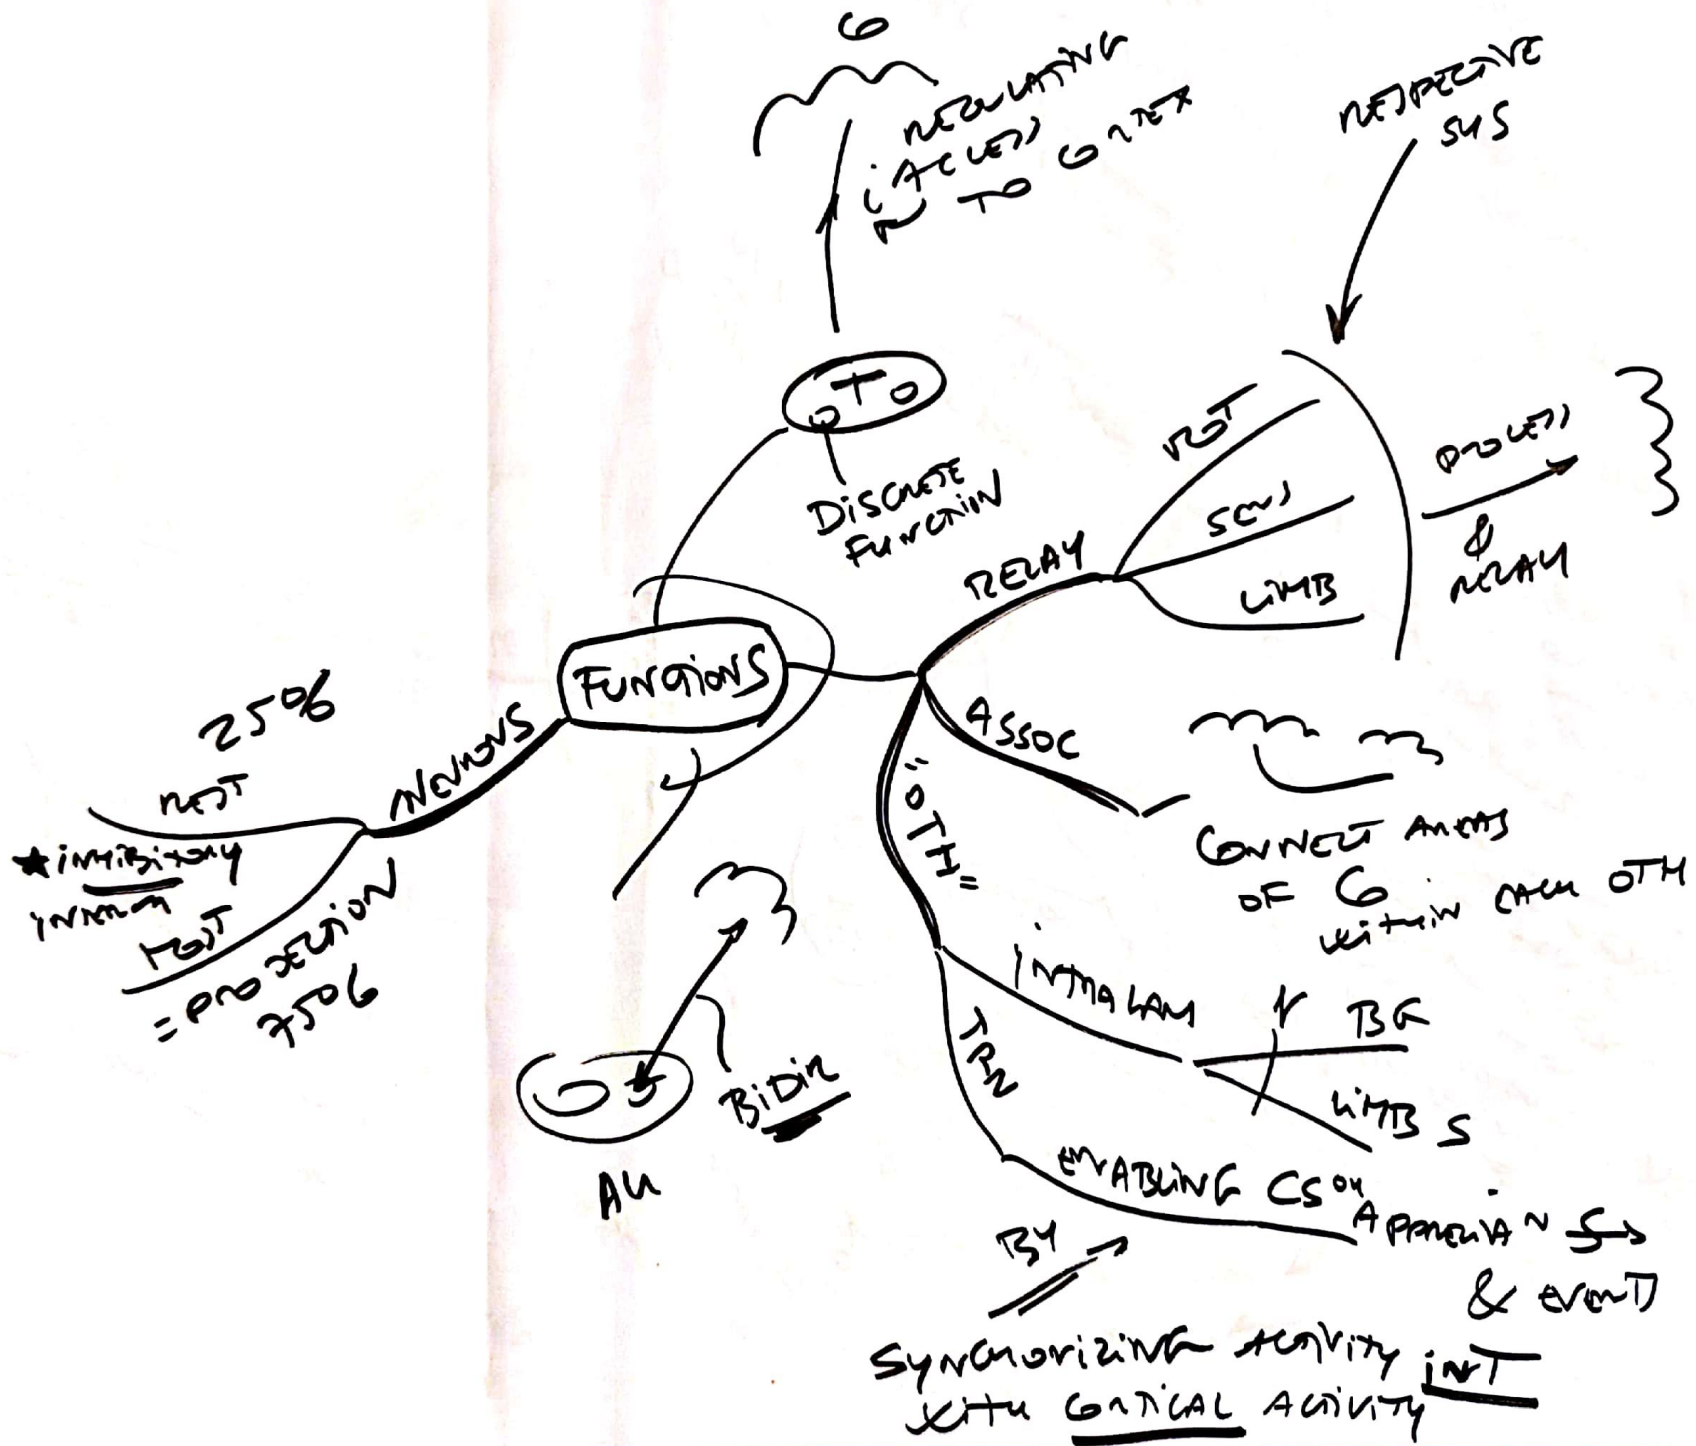 Co
REGULATING
ACCESS
TO CORTEX
RESPECTIVE
SYS
T
DISCRETE
FUNCTION
FUNCTIONS
RELAY
MOT
SENS
LIMB
PROCESS
&
RELAY
ASSOC
CONNECT AREAS
OF Co
WITHIN EACH OTH
"OTH"
INTRALAM
BG
LIMB S
TRN
ENABLING CS
APPRECIAN S →
& EVENT
BY
SYNCHORIZING ACTIVITY IN T
WITH CORTICAL ACTIVITY
NEURONS
25%
REST
★ INHIBITORY
INTERN
MOST
= PROJECTION
75%
BIDIR
All